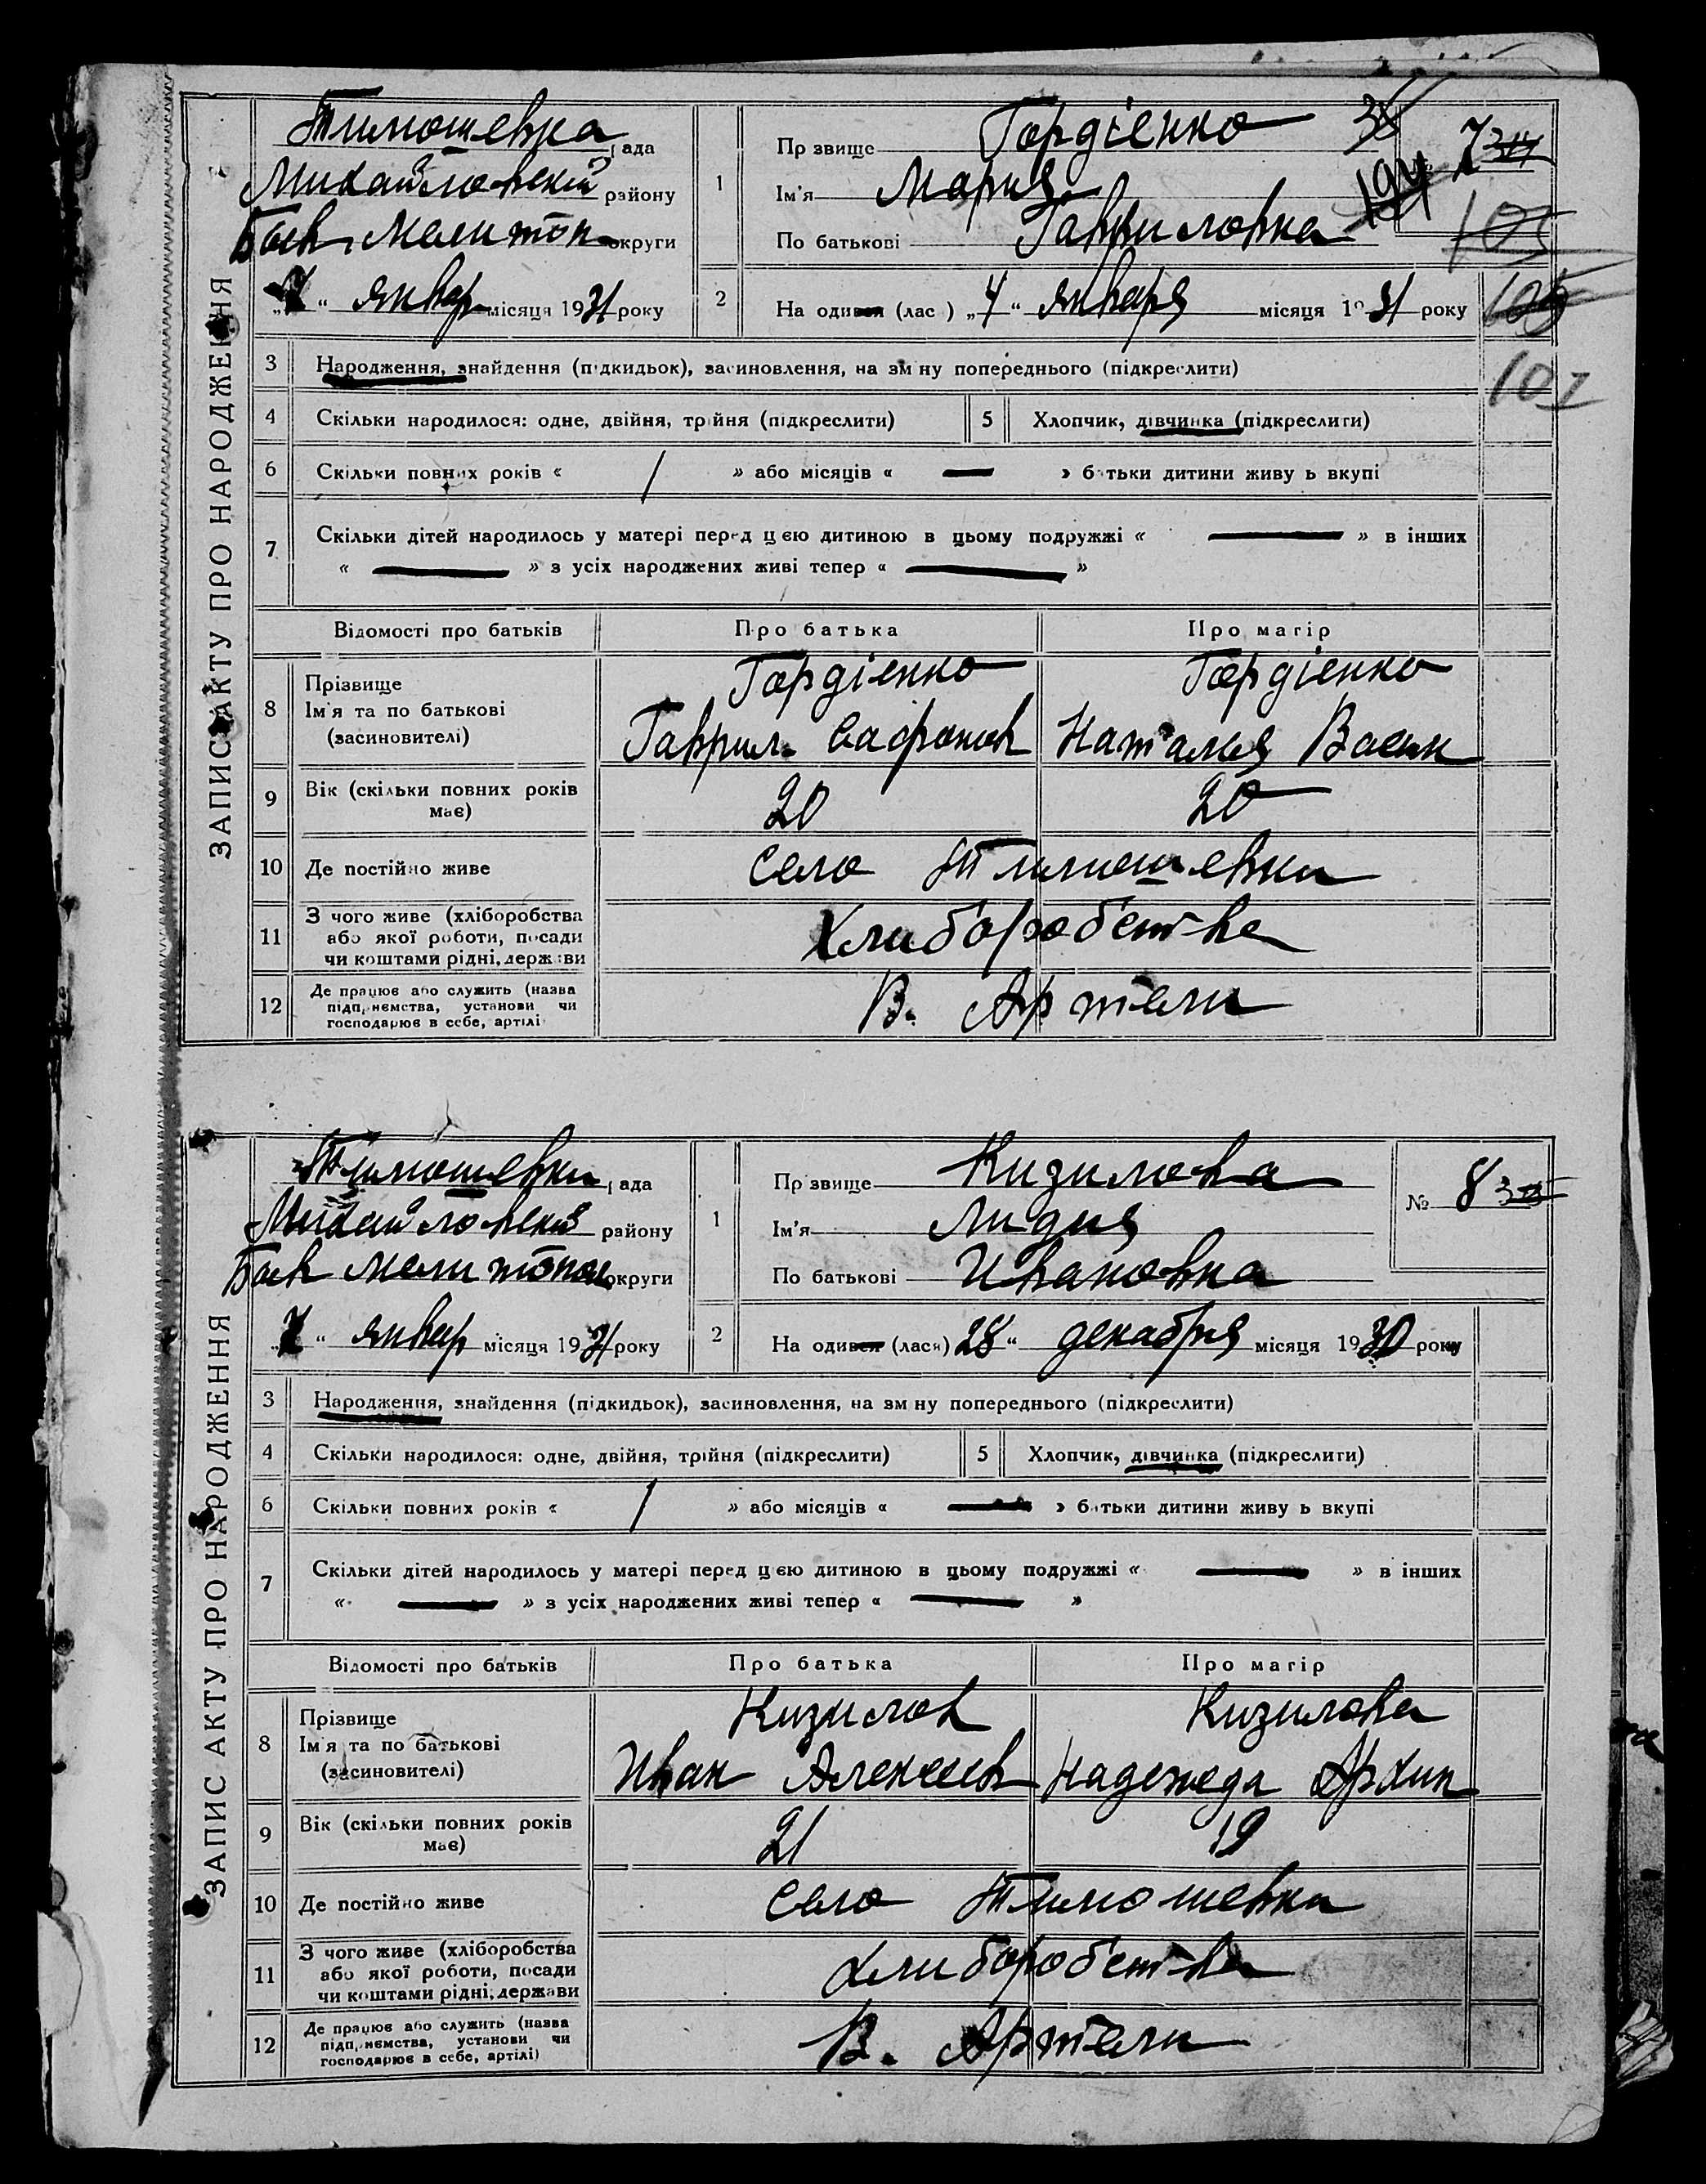 ЗАПИС АКТУ ПРО НАРОДЖЕННЯ
Тимошевка рада
Михайловский району
Мелитоп округи
„7“ январ місяця 1931 року
1
Прізвище Гордіенко
Ім'я Мария
По батькові Гавриловна
7
194
103
105
107
2 На один (лас ) „4“ января місяця 1931 року
3 Народження, знайдення (підкидьок), засиновлення, на зміну попереднього (підкреслити)
4 Скільки народилося: одне, двійня, трійня (підкреслити) 5 Хлопчик, дівчинка (підкреслити)
6 Скільки повних років « / » або місяців « — » батьки дитини живу ь вкупі
7 Скільки дітей народилось у матері перед цією дитиною в цьому подружжі « — » в інших
« — » з усіх народжених живі тепер « — »
Відомості про батьків Про батька Про матір
8 Прізвище Гордіенко Гордіенко
Ім'я та по батькові Гаврил. Сафронов Наталья Васил
(засиновителі)
9 Вік (скільки повних років має) 20 20
10 Де постійно живе село Тимошевка
11 З чого живе (хліборобства
або якої роботи, посади
чи коштами рідні, держави
Хлиборобства
12 Де працює або служить (назва
підприємства, установи чи
господарює в себе, артілі
В. Артели
ЗАПИС АКТУ ПРО НАРОДЖЕННЯ
Тимошевка рада
Михайловский району
Мелитопол округи
„7“ январ місяця 1931 року
1
Прізвище Кизилова
Ім'я Лидия
По батькові Ивановна
№ 8
2 На один (лася) 28“ декабря місяця 1930 року
3 Народження, знайдення (підкидьок), засиновлення, на зміну попереднього (підкреслити)
4 Скільки народилося: одне, двійня, трійня (підкреслити) 5 Хлопчик, дівчинка (підкреслити)
6 Скільки повних років « / » або місяців « — » батьки дитини живу ь вкупі
7 Скільки дітей народилось у матері перед цією дитиною в цьому подружжі « — » в інших
« — » з усіх народжених живі тепер « — »
Відомості про батьків Про батька Про матір
8 Прізвище Кизилов Кизилова
Ім'я та по батькові Иван Алексеев Надежда Архип
(засиновителі)
9 Вік (скільки повних років має) 21 19
10 Де постійно живе село Тимошевка
11 З чого живе (хліборобства
або якої роботи, посади
чи коштами рідні, держави
Хлиборобства
12 Де працює або служить (назва
підприємства, установи чи
господарює в себе, артілі)
В. Артели